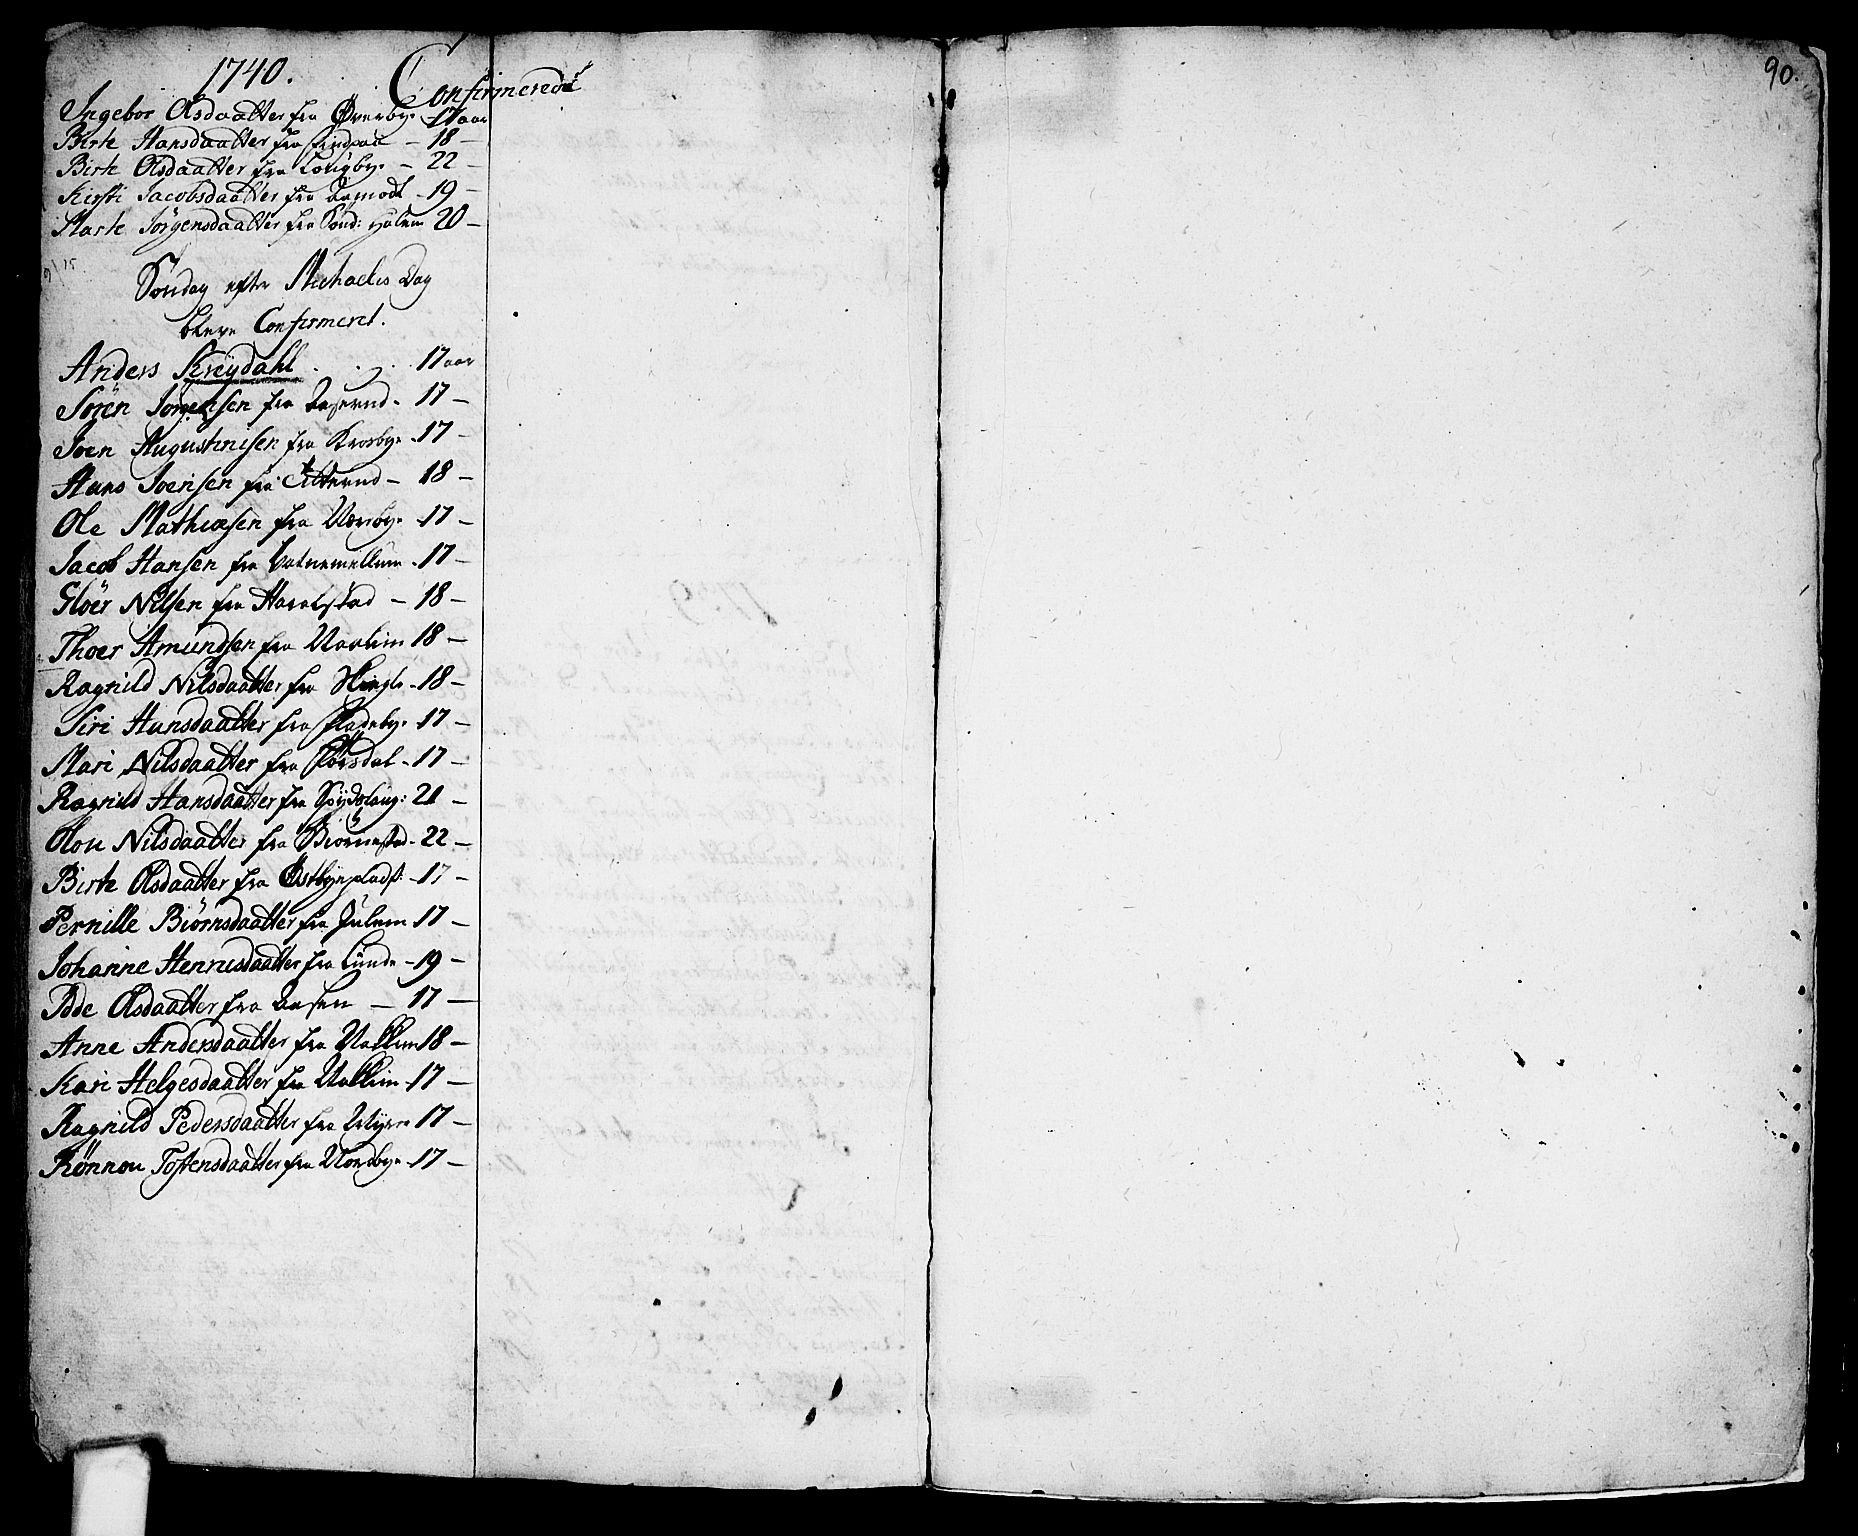 1740. Confirmerede
90.
Ingebor Olsdaatter fra Øverbye 17 aar
Birte Hansdaatter fra - 18 -
Birte Olsdaatter fra Lougbye - 22 -
Kirsti Jacobsdaatter fra Aamodt - 19 -
Marte Jörgensdaatter fra Sönd: Holem 20 -
Söndag efter Michaelis Dag
bleve Confirmeret.
Anders Kreydahl . . . 17 aar
Sören Jörgensen fra Aaserud - 17 -
Joen Augustinisen fra Krosbye - 17 -
Hans Joensen fra - 18 -
Ole Mathiæsen fra - 17 -
Jacob Hansen fra Vatnemellum - 17 -
Glöer Nilsen fra Haralstad - 18 -
Thoer Amundsen fra 18 -
Ragnild Nilsdaatter fra - 18 -
Siri Hansdaatter fra Fladebye 17 -
Mari Nilsdaatter fra - 17 -
Ragnild Hansdaatter fra 21 -
Olou Nilsdaatter fra Biörnestad - 22 -
Birte Olsdaatter fra Østbyeplads: - 17 -
Pernille Biörnsdaatter fra Julum - 17 -
Johanne Henricsdaatter fra Lunde - 19 -
Idde Olsdaatter fra Aasen - 17 -
Anne Andersdaatter fra 18 -
Kari Helgesdaatter fra - 17 -
Ragnild Pedersdaatter fra 17 -
Rönnou Tostensdaatter fra Nordbye - 17 -